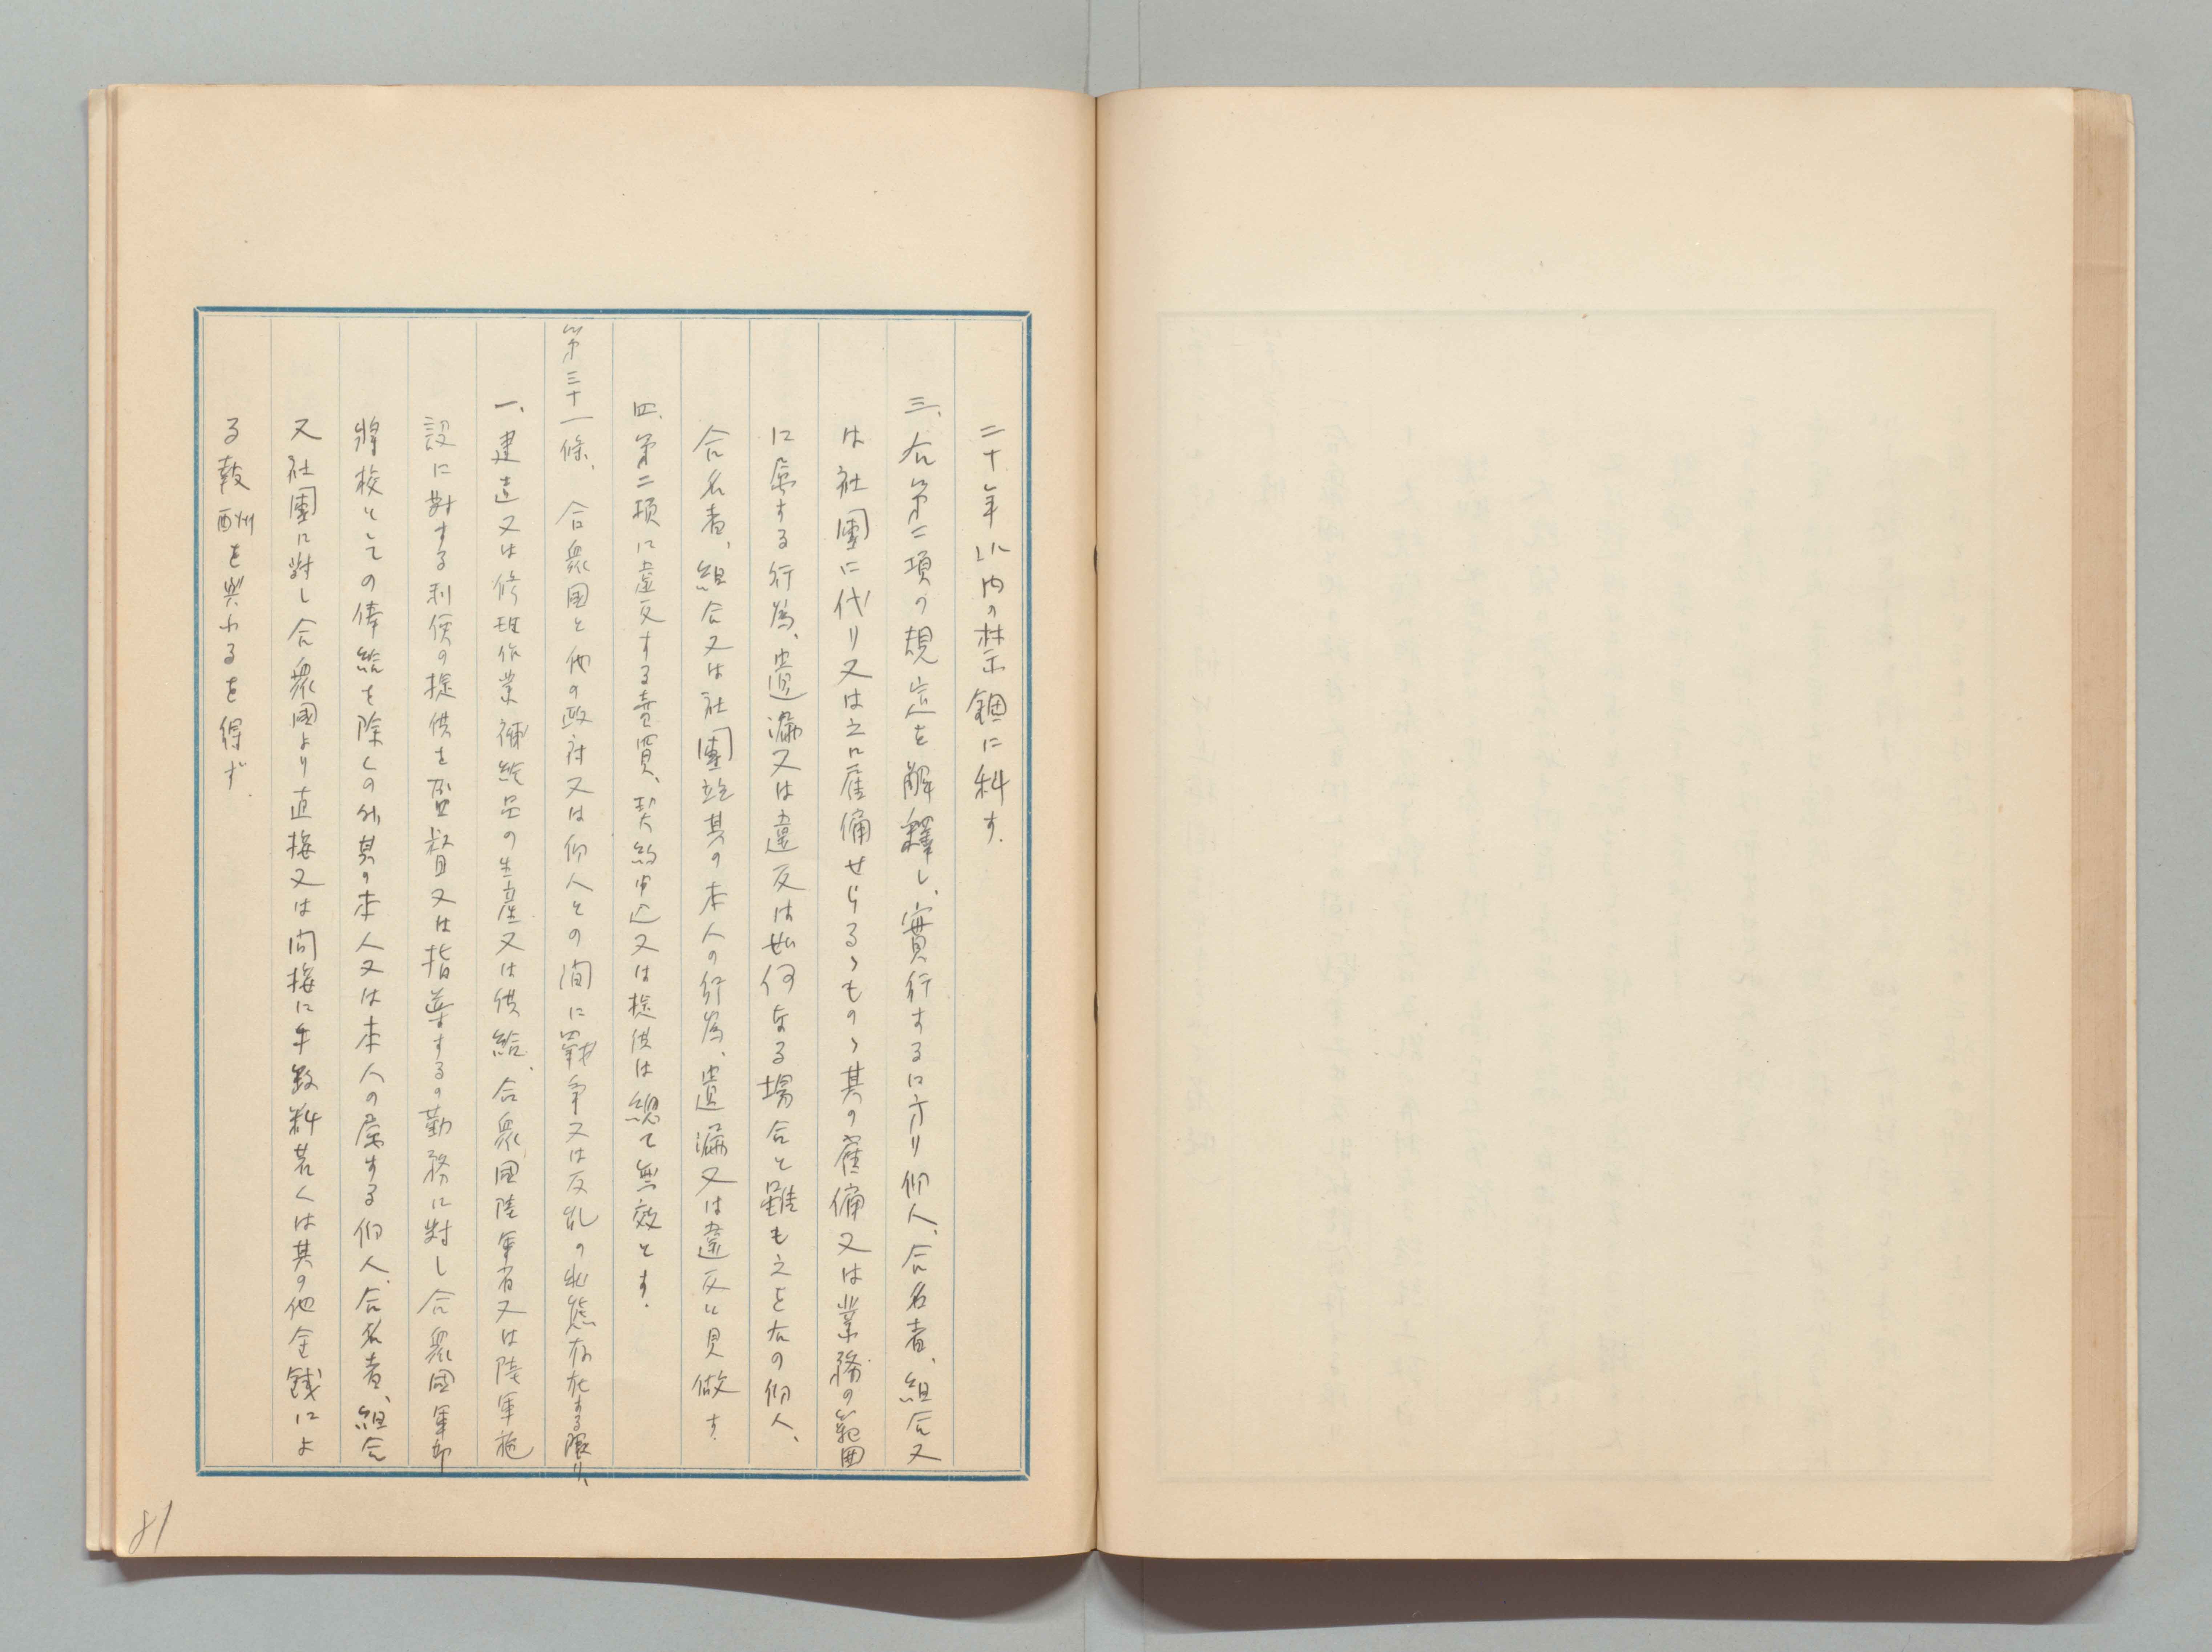 二十年以内の禁錮に科す.
三、右第二項の規定を解釋し、實行するに方り個人、合名者、組合又
は社團に代り又は之に雇傭せらるゝものゝ其の雇傭又は業務の範囲
に属する行為、遺漏又は違反は如何なる場合と雖も之を右の個人、
合名者、組合又は社團竝其の本人の行為、遺漏又は違反と見做す.
四、第二項に違反する賣買、契約申込又は提供は總て無效とす.
第三十一條、合衆國と他の政府又は個人との間に戰争又は反乱の状態存在する限り、
一、建造又は修理作業補給品の生産又は供給、合衆國陸軍省又は陸軍施
設に對する利便の提供を監督又は指導するの勤務に對し合衆國軍部
将校としての俸給を除くの外其の本人又は本人の属する個人、合名者、組合
又社團に對し合衆國より直接又は間接に手数料若くは其の他金錢によ
る報酬を與わるを得ず.
81